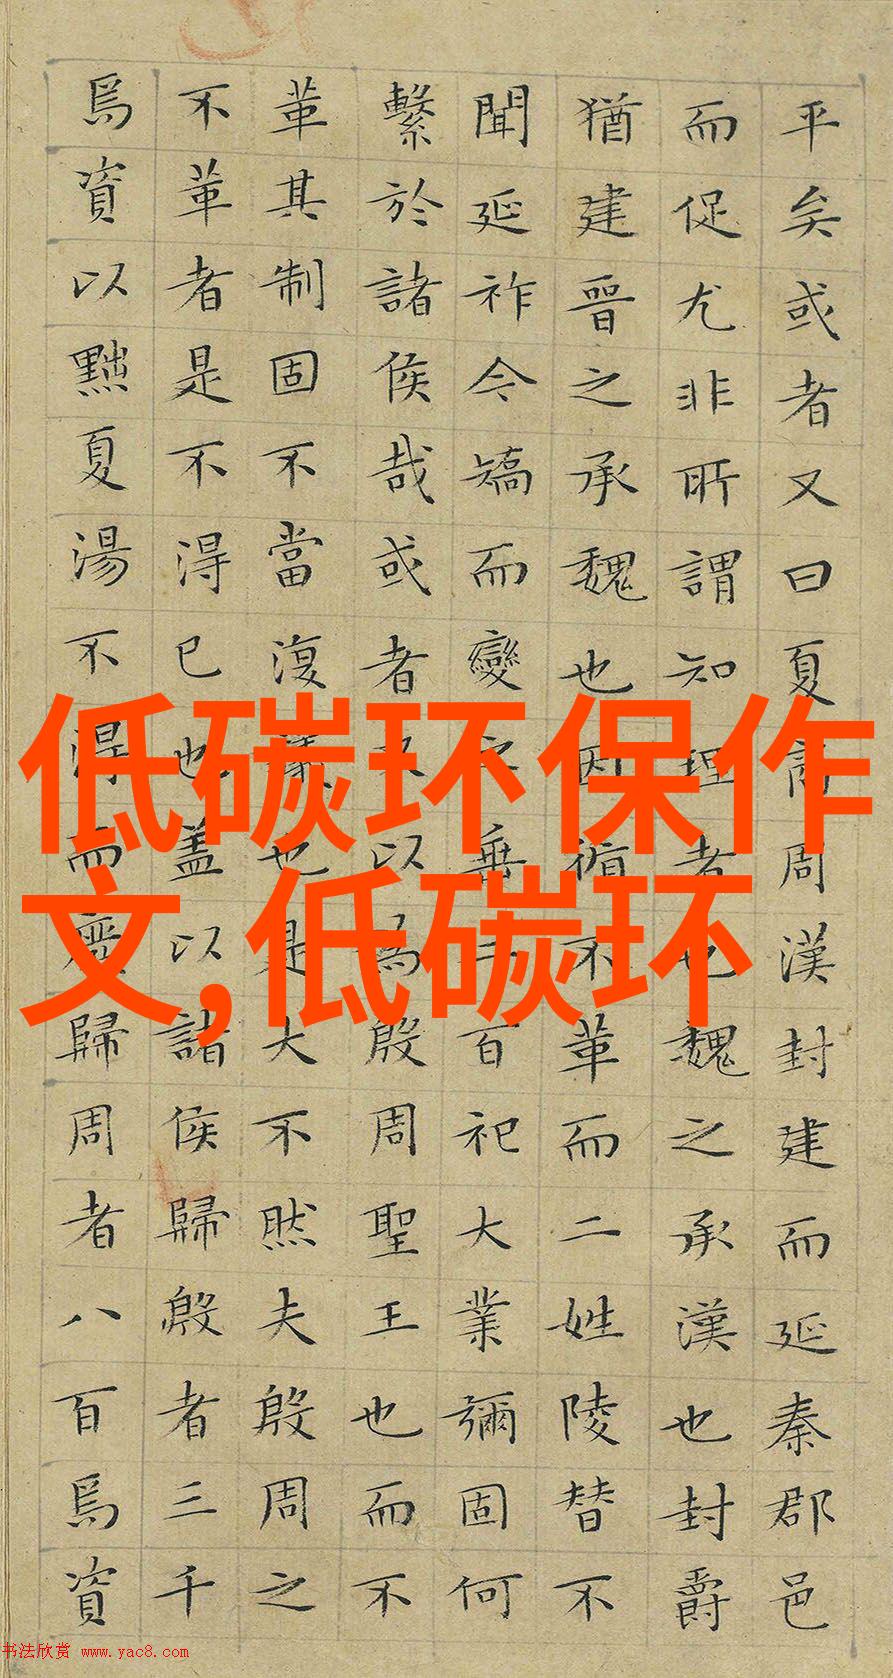 平矣或者又曰夏商周漢封建而延秦郡邑
而促尤非所謂知理者也魏之承漢也封爵
猶建晉之承魏也因循不革而二姓陵替不
聞延祚今矯而變之垂二百祀大業彌固何
繫於諸侯哉或者又以爲殷周聖王也而不
革其制固不當復議也是大不然夫殷周之
不革者是不得已也盖以諸侯歸殷者三千
焉資以黜夏湯不得而廢歸周者八百焉資
低碳环保作
文,低碳环
书法欣赏 www.yac8.com